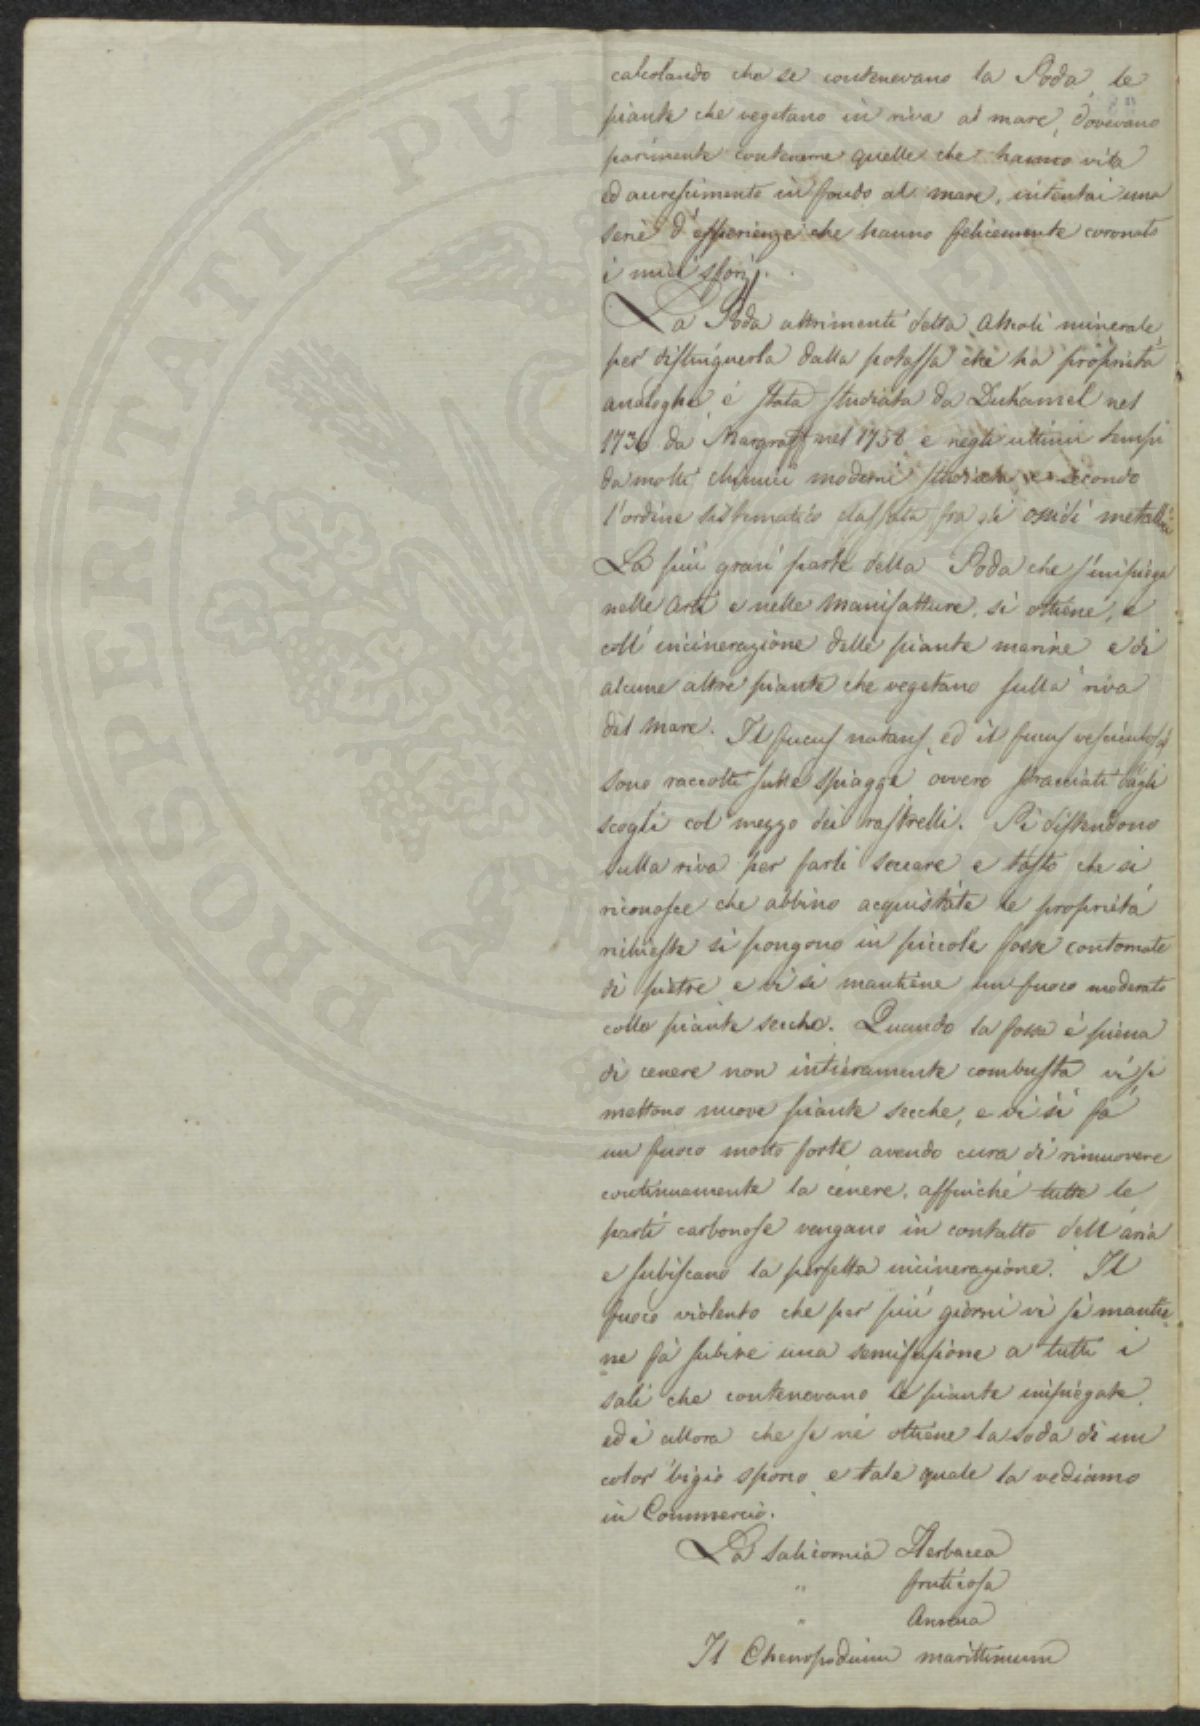 calcolando che se contenevano la Soda le
piante che vegetano in riva al mare, dovevano
parimente contenerne quelle che hanno vita
ed accrescimento in fondo al mare, intentai una
serie d'esperienze che hanno felicemente coronato
i miei sforzj.
La Soda altrimenti detta Alcali minerale
per distinguerla dalla potassa che ha proprietà
analoghe, è stata studiata da Duhamel nel
1736 da Margraff nel 1758 e negli ultimi tempi
da molti chimici moderni studiata e secondo
l'ordine sistematico classata fra gli ossidi metallici
La più gran parte della Soda che s'impiega
nelle arti e nelle manifatture, si ottiene, e
coll'incinerazione delle piante marine e di
alcune altre piante che vegetano sulla riva
del mare. Il fucus natans, ed il fucus vesciculosus
sono raccolti sulle spiagge, ovvero stracciati dagli
scogli col mezzo dei rastrelli. Si distendono
sulla riva per farli seccare e tosto che si
riconosce che abbino acquistate le proprietà
richieste si pongono in piccole fosse contornate
di pietre e vi si mantiene un fuoco moderato
colle piante secche. Quando la fossa è piena
di cenere non intieramente combusta vi si
mettono nuove piante secche, e vi si fà
un fuoco molto forte avendo cura di rimuovere
continuamente la cenere, affinché tutte le
parti carbonose vengano in contatto dell'aria
e subiscano la perfetta incinerazione. Il
fuoco violento che per più giorni vi si mantie
ne fà subire una semifusione a tutti i
sali che contenevano le piante impiegate,
ed è allora che se ne ottiene la soda di un
color bigio sporco e tale quale la vediamo
in Commercio.
La Salicornia Herbacea
" fruticosa
" Annua
Il Chenopodium marittimum
PROSPERITATI PVBLICAE